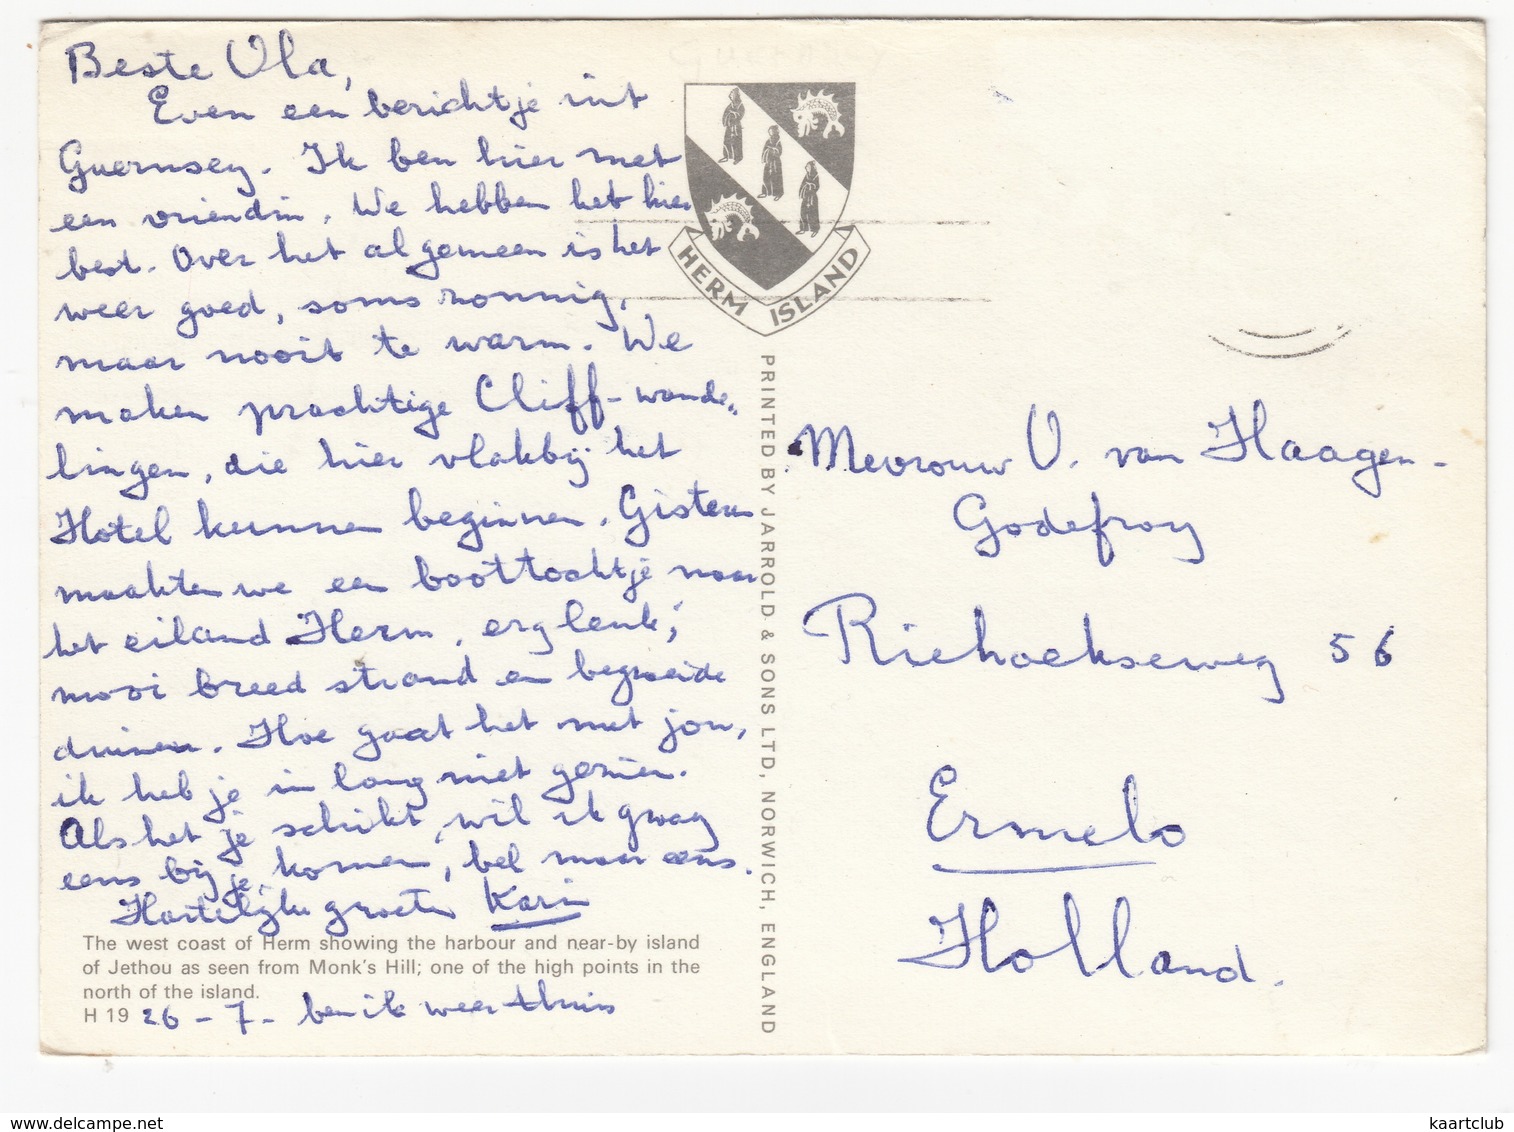 Beste Ula,
Even een berichtje uit
Guernsey. Ik ben hier met
een vriendin. We hebben het hier
best. Over het algemeen is het
weer goed, soms zonnig,
maar nooit te warm. We
maken prachtige Cliff-wande-
lingen, die hier vlakbij het
Hotel kunnen beginnen. Gisteren
maakten we een boottochtje naar
het eiland Herm, erg leuk,
mooi breed strand en begroeide
duinen. Hoe gaat het met jou,
ik heb je in lang niet gezien.
Als het je schikt, wil ik graag
eens bij je komen, bel maar eens.
Hartelijke groeten Karin
The west coast of Herm showing the harbour and near-by island
of Jethou as seen from Monk's Hill; one of the high points in the
north of the island.
H 19 26 - 7 - ben ik weer thuis
HERM ISLAND
PRINTED BY JARROLD & SONS LTD, NORWICH, ENGLAND
Mevrouw U. van Haagen-
Godefroy
Riehoekseweg 56
Ermelo
Holland.
delcampe.net
kaartclub